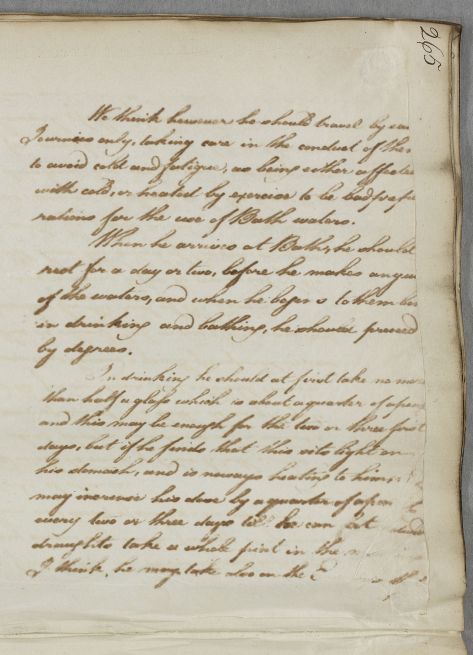 265
We think however he should travel by eas
Journies only, taking care in the conduct of them
to avoid cold and fatigue, as being either affected
with cold, or heated by exercise to be bad prepa
rations for the use of Bath waters.
When he arrives at Bath, he should
rest for a day or two, before he makes any use
of the waters, and when he begins to them both
in drinking and bathing, he should proceed
by degrees.
In drinking he should at first take no more
than half a glass which is about a quarter of a pint
and this may be enough for the two or three first
days, but if he finds, that this sits light on
his stomach, and is noways heating to him, he
may increase his dose by a quarter of a pint
every two or three days till he can at
draughts take a whole pint in the
I think, he may take also on the